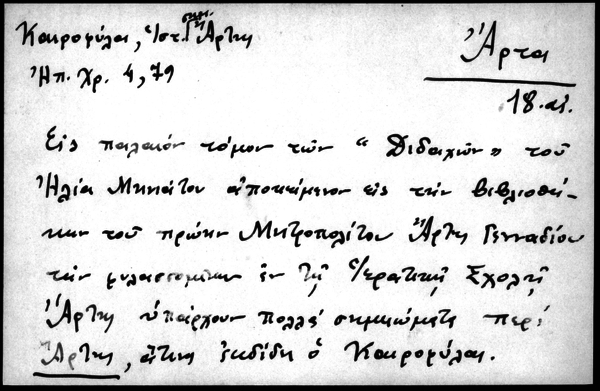 Καιροφύλα, Ἱστ. σημ. Ἄρτης
Ἄρτα
Ἠπ. Χρ. 4, 79
18. αἰ.
Εἰς παλαιόν τόμον τῶν "Διδαχῶν" τοῦ
Ἠλία Μηνιάτου ἀποκείμενον εἰς τήν βιβλιοθή-
κην τοῦ πρώην Μητροπολίτου Ἄρτης Γενναδίου
τήν φυλασσομένην ἐν τῇ Ἱερατικῇ Σχολῇ
Ἄρτης ὑπάρχουν πολλά σημειώματα περί
Ἄρτης, ἅτινα ἐκδίδει ὁ Καιροφύλας.